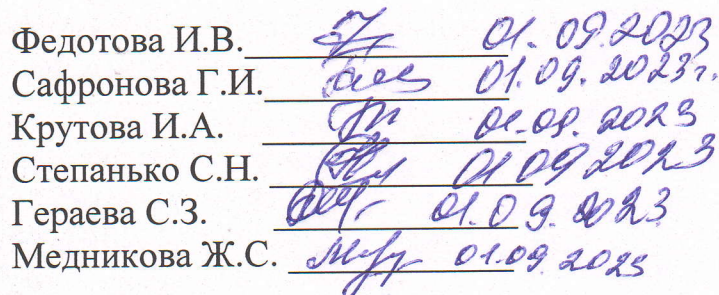 Федотова И.В. 01.09.2023
Сафронова Г.И. 01.09.2023г.
Крутова И.А. 01.09.2023
Степанько С.Н. 01 09 2023
Гераева С.З. 01.09.2023
Медникова Ж.С. 01.09.2023